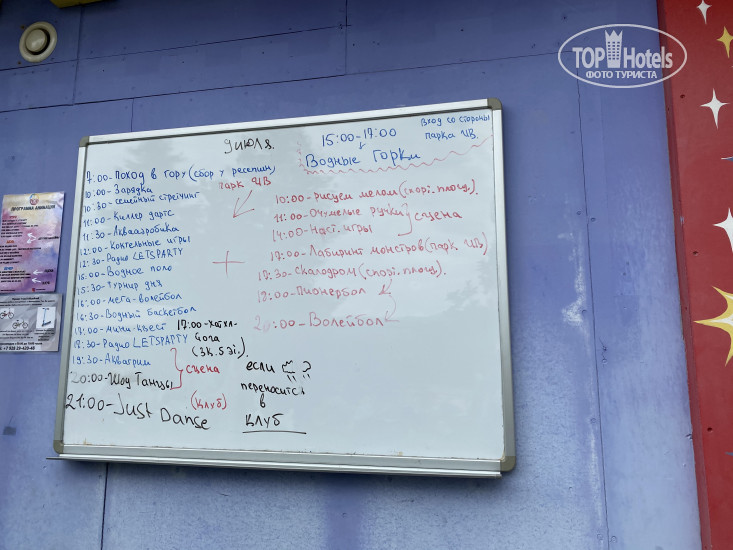 TOP Hotels
ФОТО ТУРИСТА
9 июля.
15:00-17:00
Водные Горки
вход со стороны
парка ЦВ.
7:00-Поход в гору (сбор у ресепшн)
10:00-Зарядка
парк ЦВ
10:30-семейный стретчинг
11:00-Киллер дартс
11:30-Аквааэробика
12:00-Коктельные игры
12:30-Радио LETSPARTY
15:00-Водное поло
15:30-Турнир дня
16:00-мега-волейбол
16:30-Водный баскетбол
17:00-мини-квест
17:00-Хатха-
Йога
(3к. 5 эт.)
18:30-Радио LETSPARTY
19:30-Аквагрим
20:00-Шоу Танцы
сцена
21:00-Just Danse
(клуб)
+
10:00-рисуем мелом (спорт. площ.)
11:00-Очумелые ручки
14:00-Наст. игры
сцена
17:00-Лабиринт монстров (парк ЦВ)
17:30-Скалодром (спорт. площ.)
18:00-Пионербол
20:00-Волейбол
если ?
переносится
в
клуб
ПРОГРАММА АНИМАЦИИ